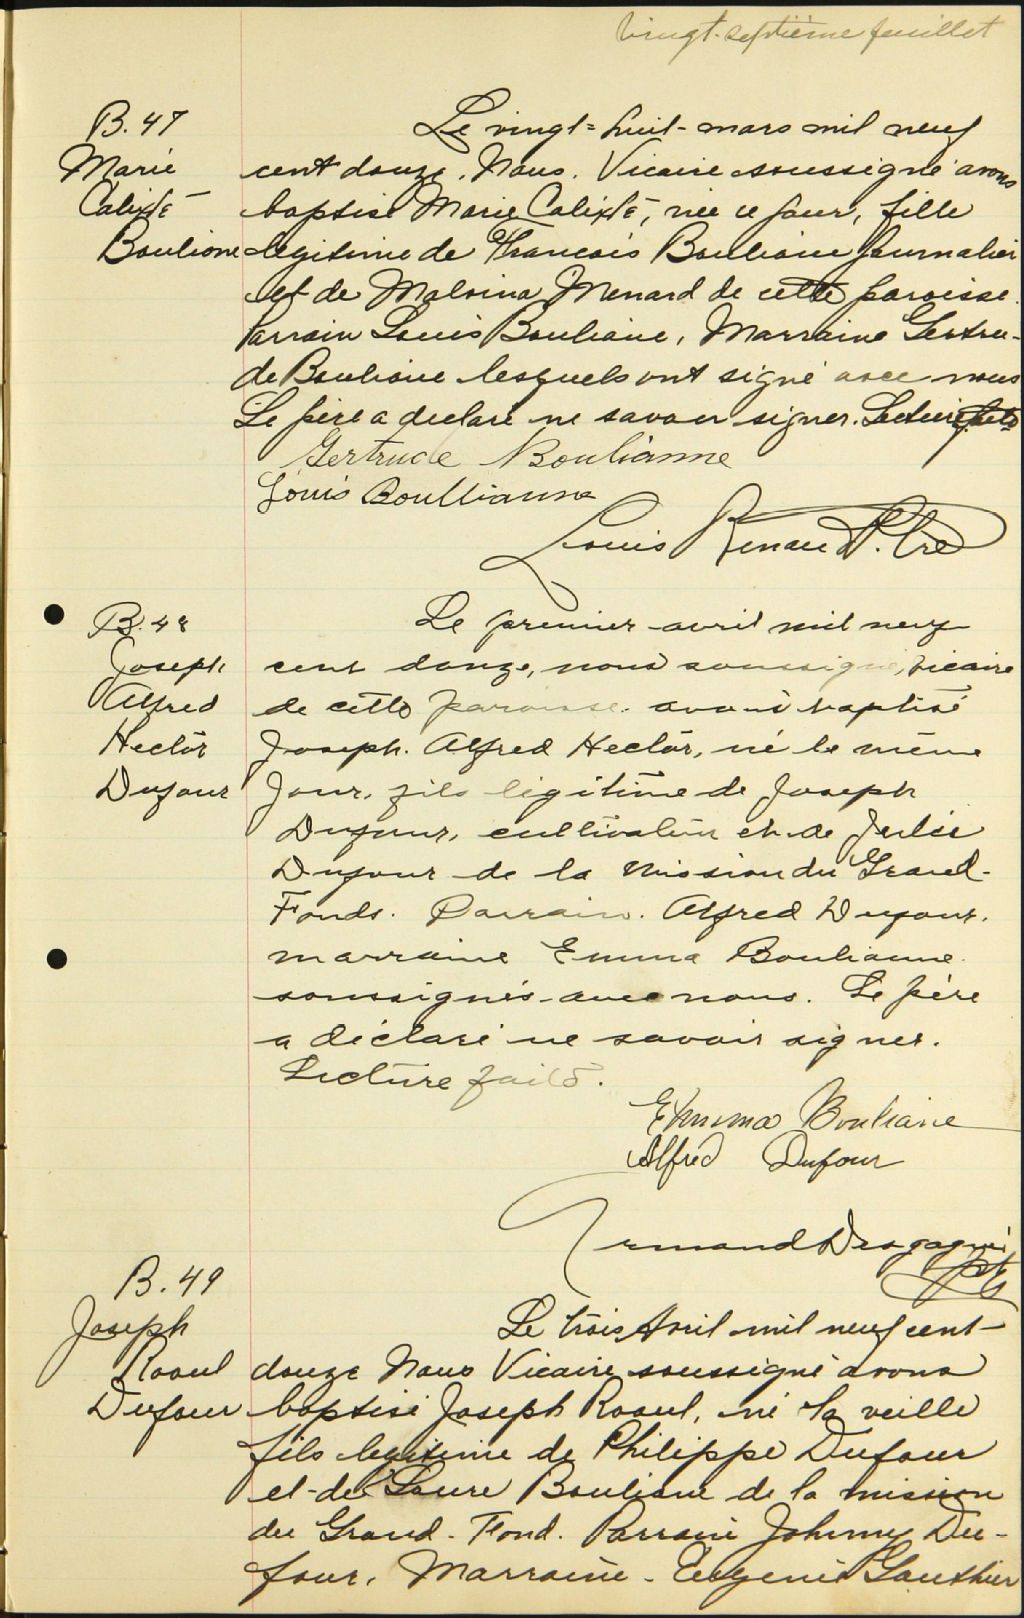 vingt-septième feuillet
B. 47
Marie
Calixte
Bouliane
Le vingt-huit-mars mil neuf
cent douze. Nous. Vicaire soussigné avons
baptisé Marie Calixte, née ce jour, fille
legitime de Francois Bouliane journalier
et de Malvina Menard de cette paroisse.
Parrain Louis Bouliane, Marraine Gertru-
de Bouliane lesquels ont signé avec nous
Le père a declaré ne savoir signer. Lecture faite
Gertrude Boulianne
Louis Boullianne
Louis Renaud Ptre
B. 48
Joseph
Alfred
Hector
Dufour
Le premier avril mil neuf
cent douze, nous soussigné, vicaire
de cette paroisse. avons baptisé
Joseph. Alfred Hector, né le même
jour, fils légitime de Joseph
Dufour, cultivateur et de Julie
Dufour de la mission du Grand-
Fonds. Parrain. Alfred Dufour.
marraine Emma Boulianne.
soussignés avec nous. Le père
a déclaré ne savoir signer.
Lecture faite.
Emma Bouliane
Alfred Dufour
Armand Desgagné
ptre
B. 49
Joseph
Raoul
Dufour
Le trois Avril mil neuf cent-
douze Nous Vicaire soussigné avons
baptisé Joseph Raoul, né la veille
fils legitime de Philippe Dufour
et de Laure Bouliane de la mission
du Grand-Fond. Parrain Johnny Du-
four, Marraine-Eugenie Gauthier